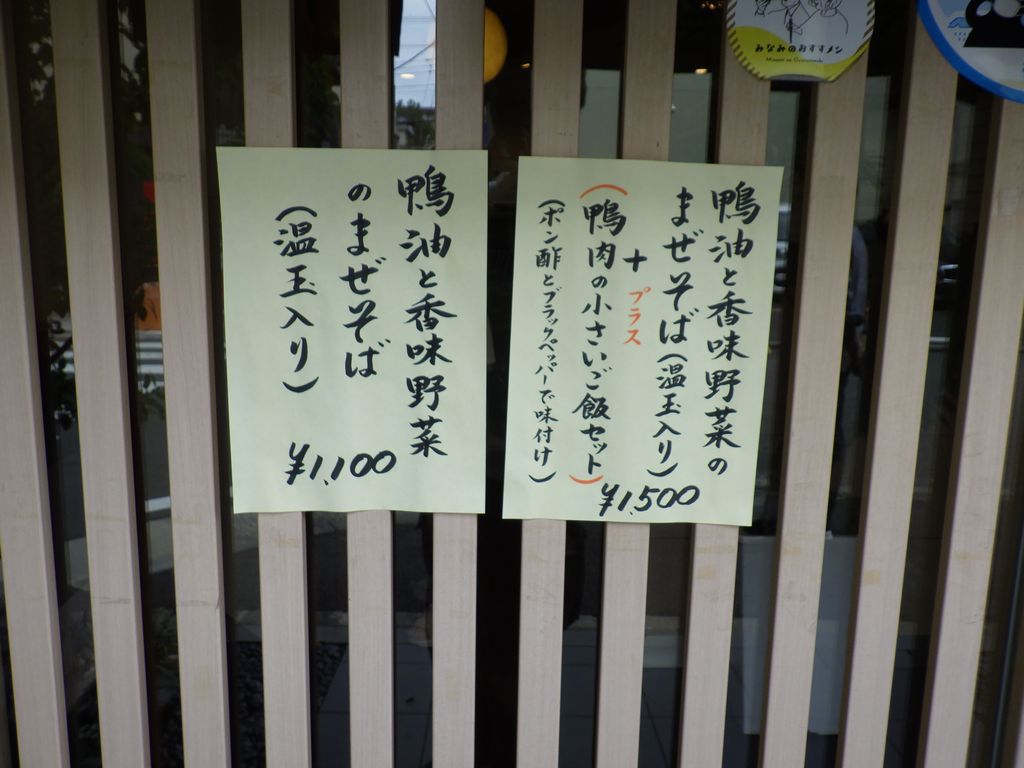 鴨油と香味野菜
のまぜそば
(温玉入り)
¥1,100
鴨油と香味野菜の
まぜそば(温玉入り)
+プラス
(鴨肉の小さいご飯セット)
(ポン酢とブラックペッパーで味付け)
¥1,500
みなみのおすすメン